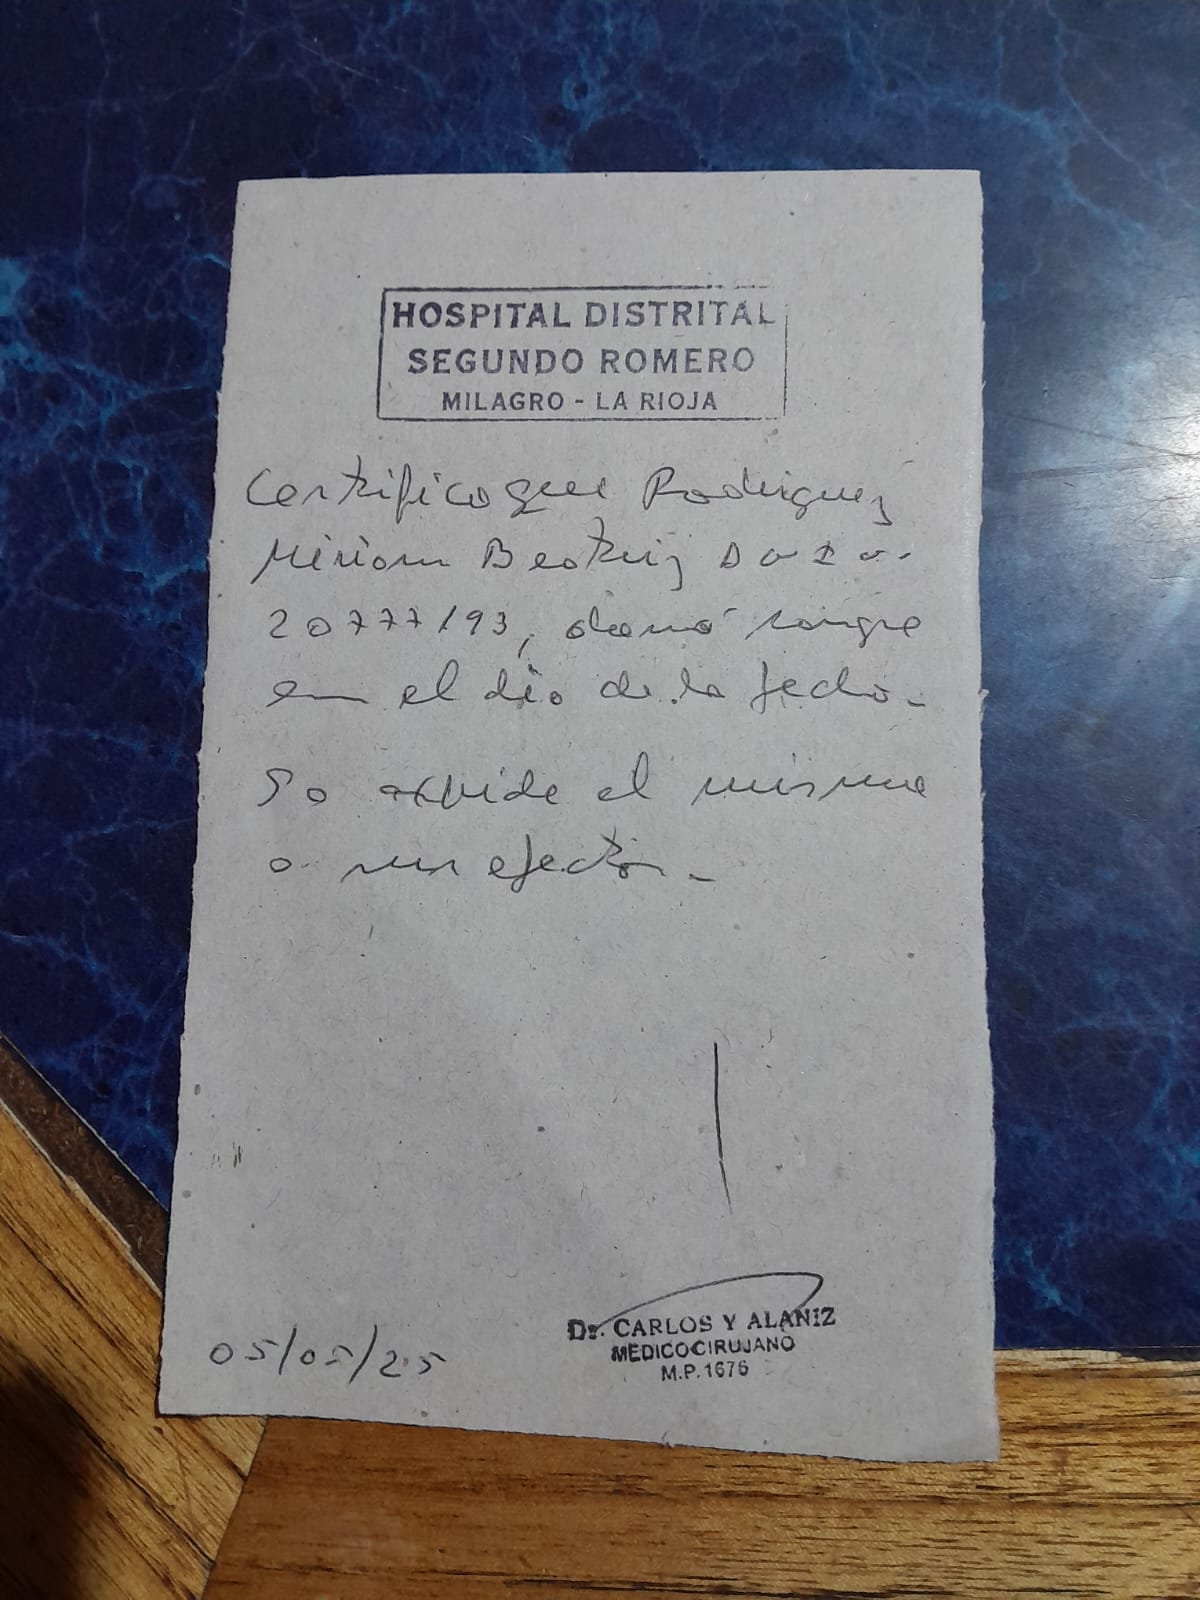 HOSPITAL DISTRITAL
SEGUNDO ROMERO
MILAGRO - LA RIOJA
Certifico que Rodriguez
Miriam Beatriz
20777193, donó sangre
en el día de la fecha.
Se expide el mismo
a sus efectos.
05/05/25
Dr. CARLOS Y ALANIZ
MEDICO CIRUJANO
M.P. 1676